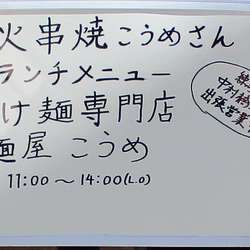 火串焼こうめさん
ランチメニュー
け麺専門店
麺屋 こうめ
11:00～14:00(L.O)
中村
出張営業